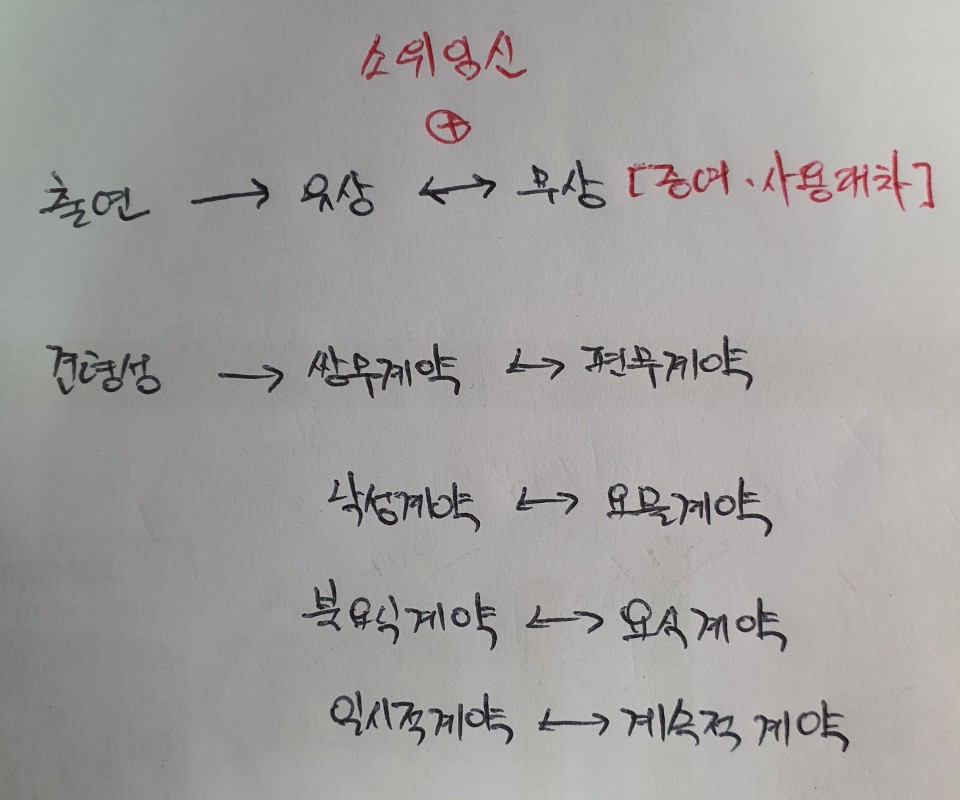 소위임신
⊕
출연 → 유상 ↔ 무상 [증여·사용대차]
견련성 → 쌍무계약 ↔ 편무계약
낙성계약 ↔ 요물계약
불요식계약 ↔ 요식계약
일시적계약 ↔ 계속적 계약